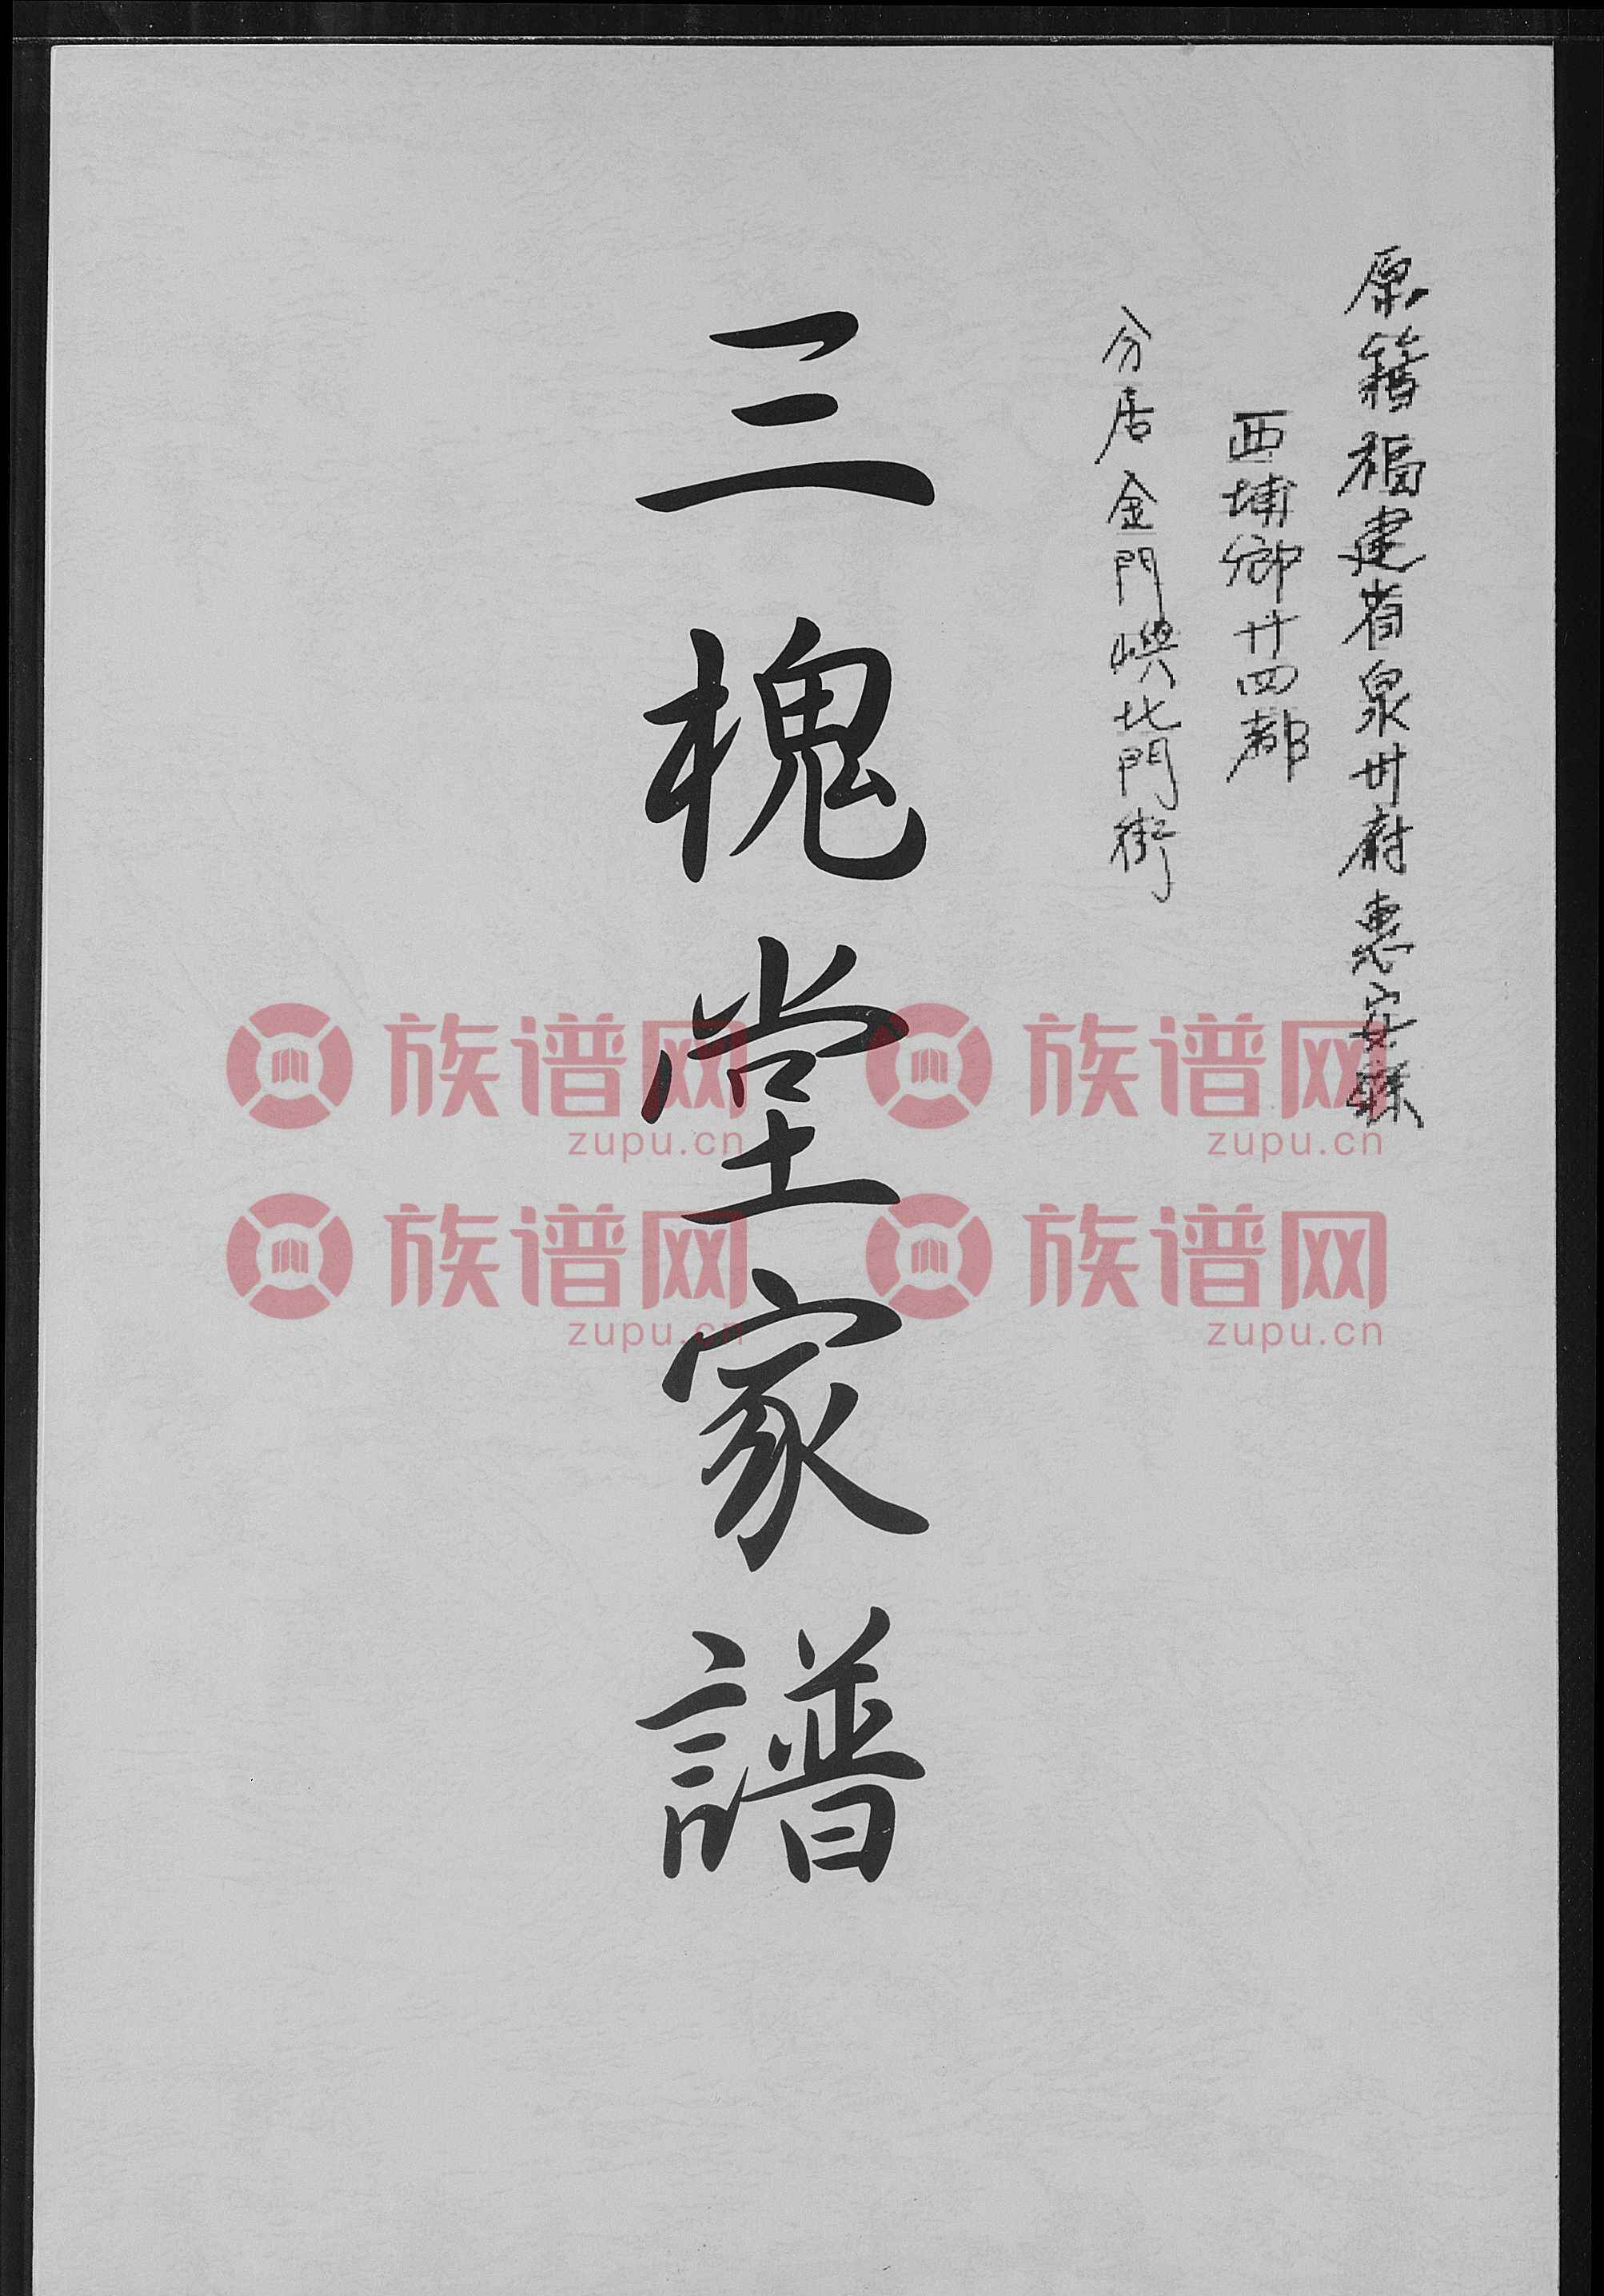 原籍福建省泉州府惠安縣
西埔鄉廿四都
分居金門嶼北門街
三槐堂家譜
族谱网 族谱网
zupu.cn zupu.cn
族谱网 族谱网
zupu.cn zupu.cn